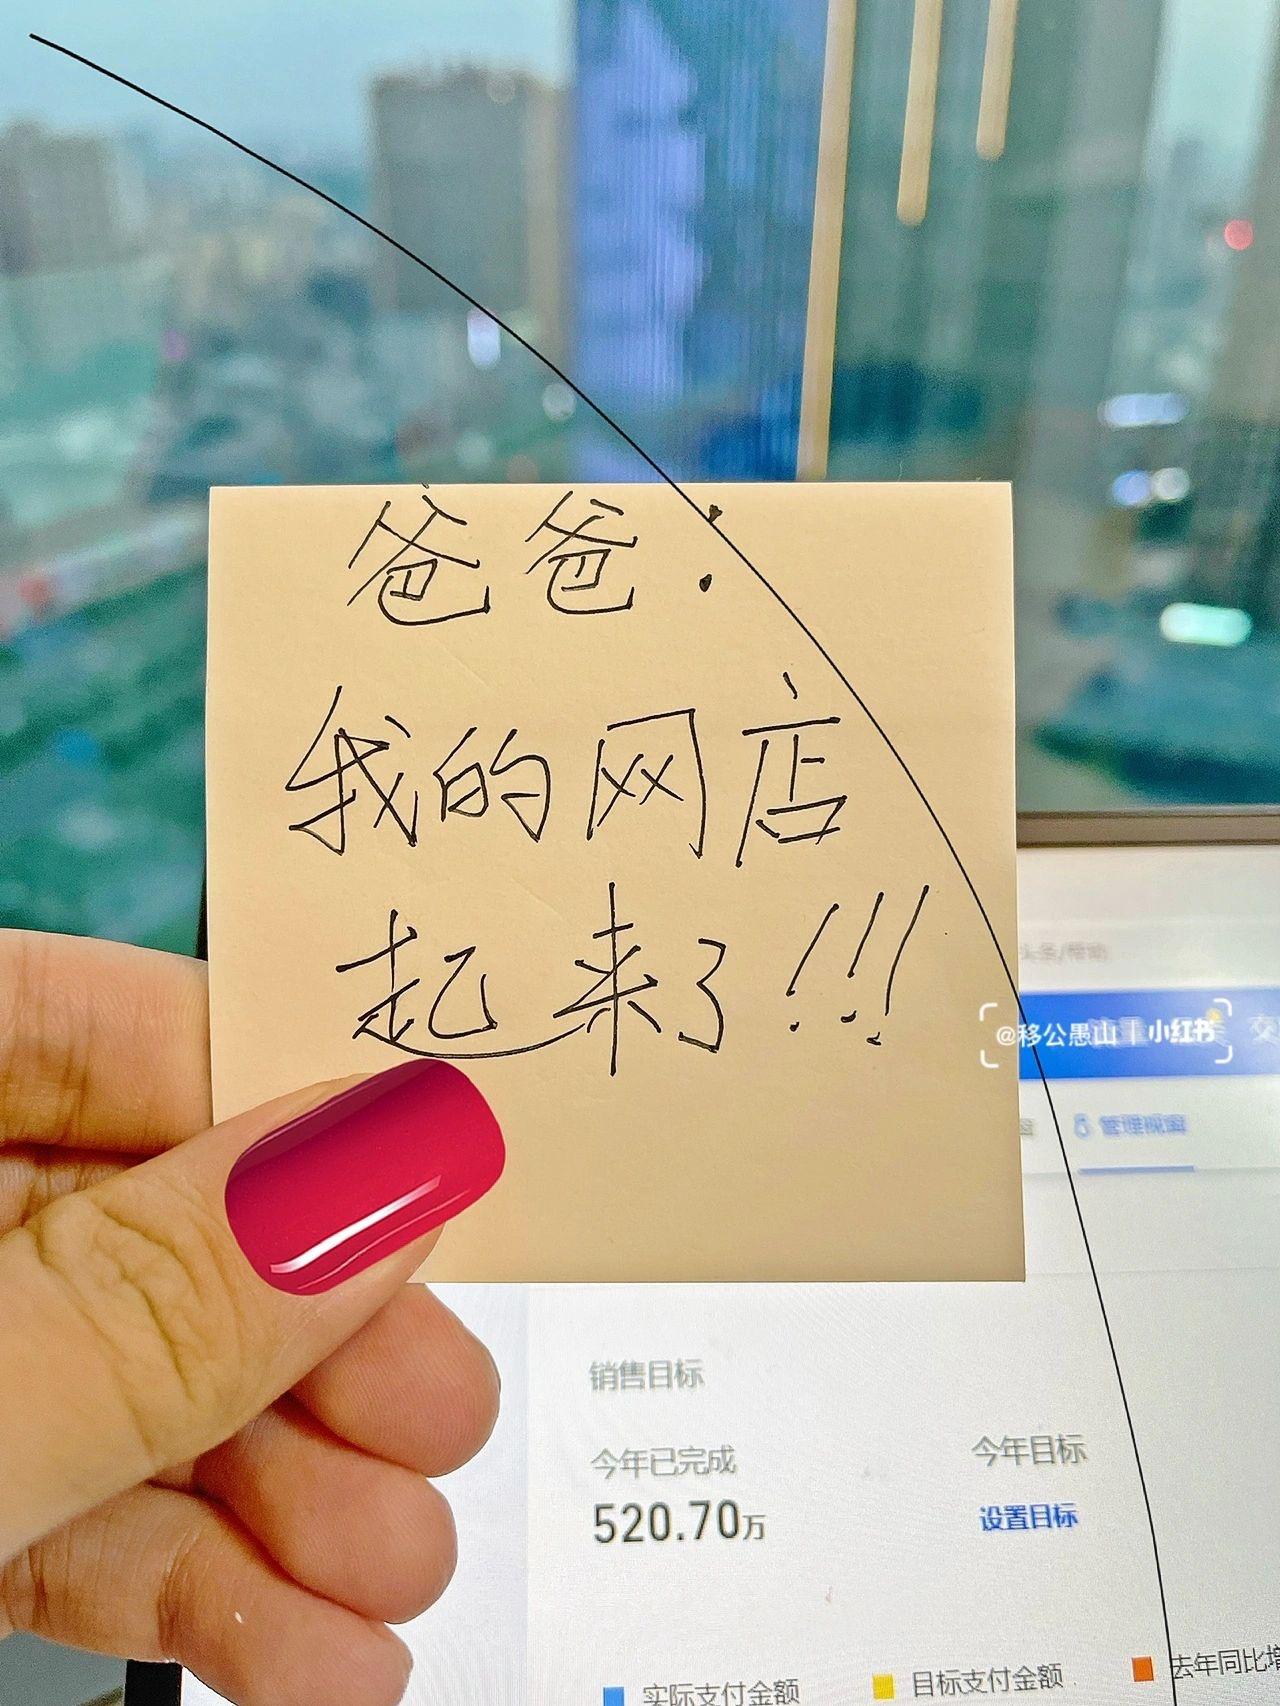 爸爸：
我的网店
起来了!!!
@移公愚山 | 小红书
管理视窗
销售目标
今年已完成 今年目标
520.70万 设置目标
实际支付金额 目标支付金额 去年同比增